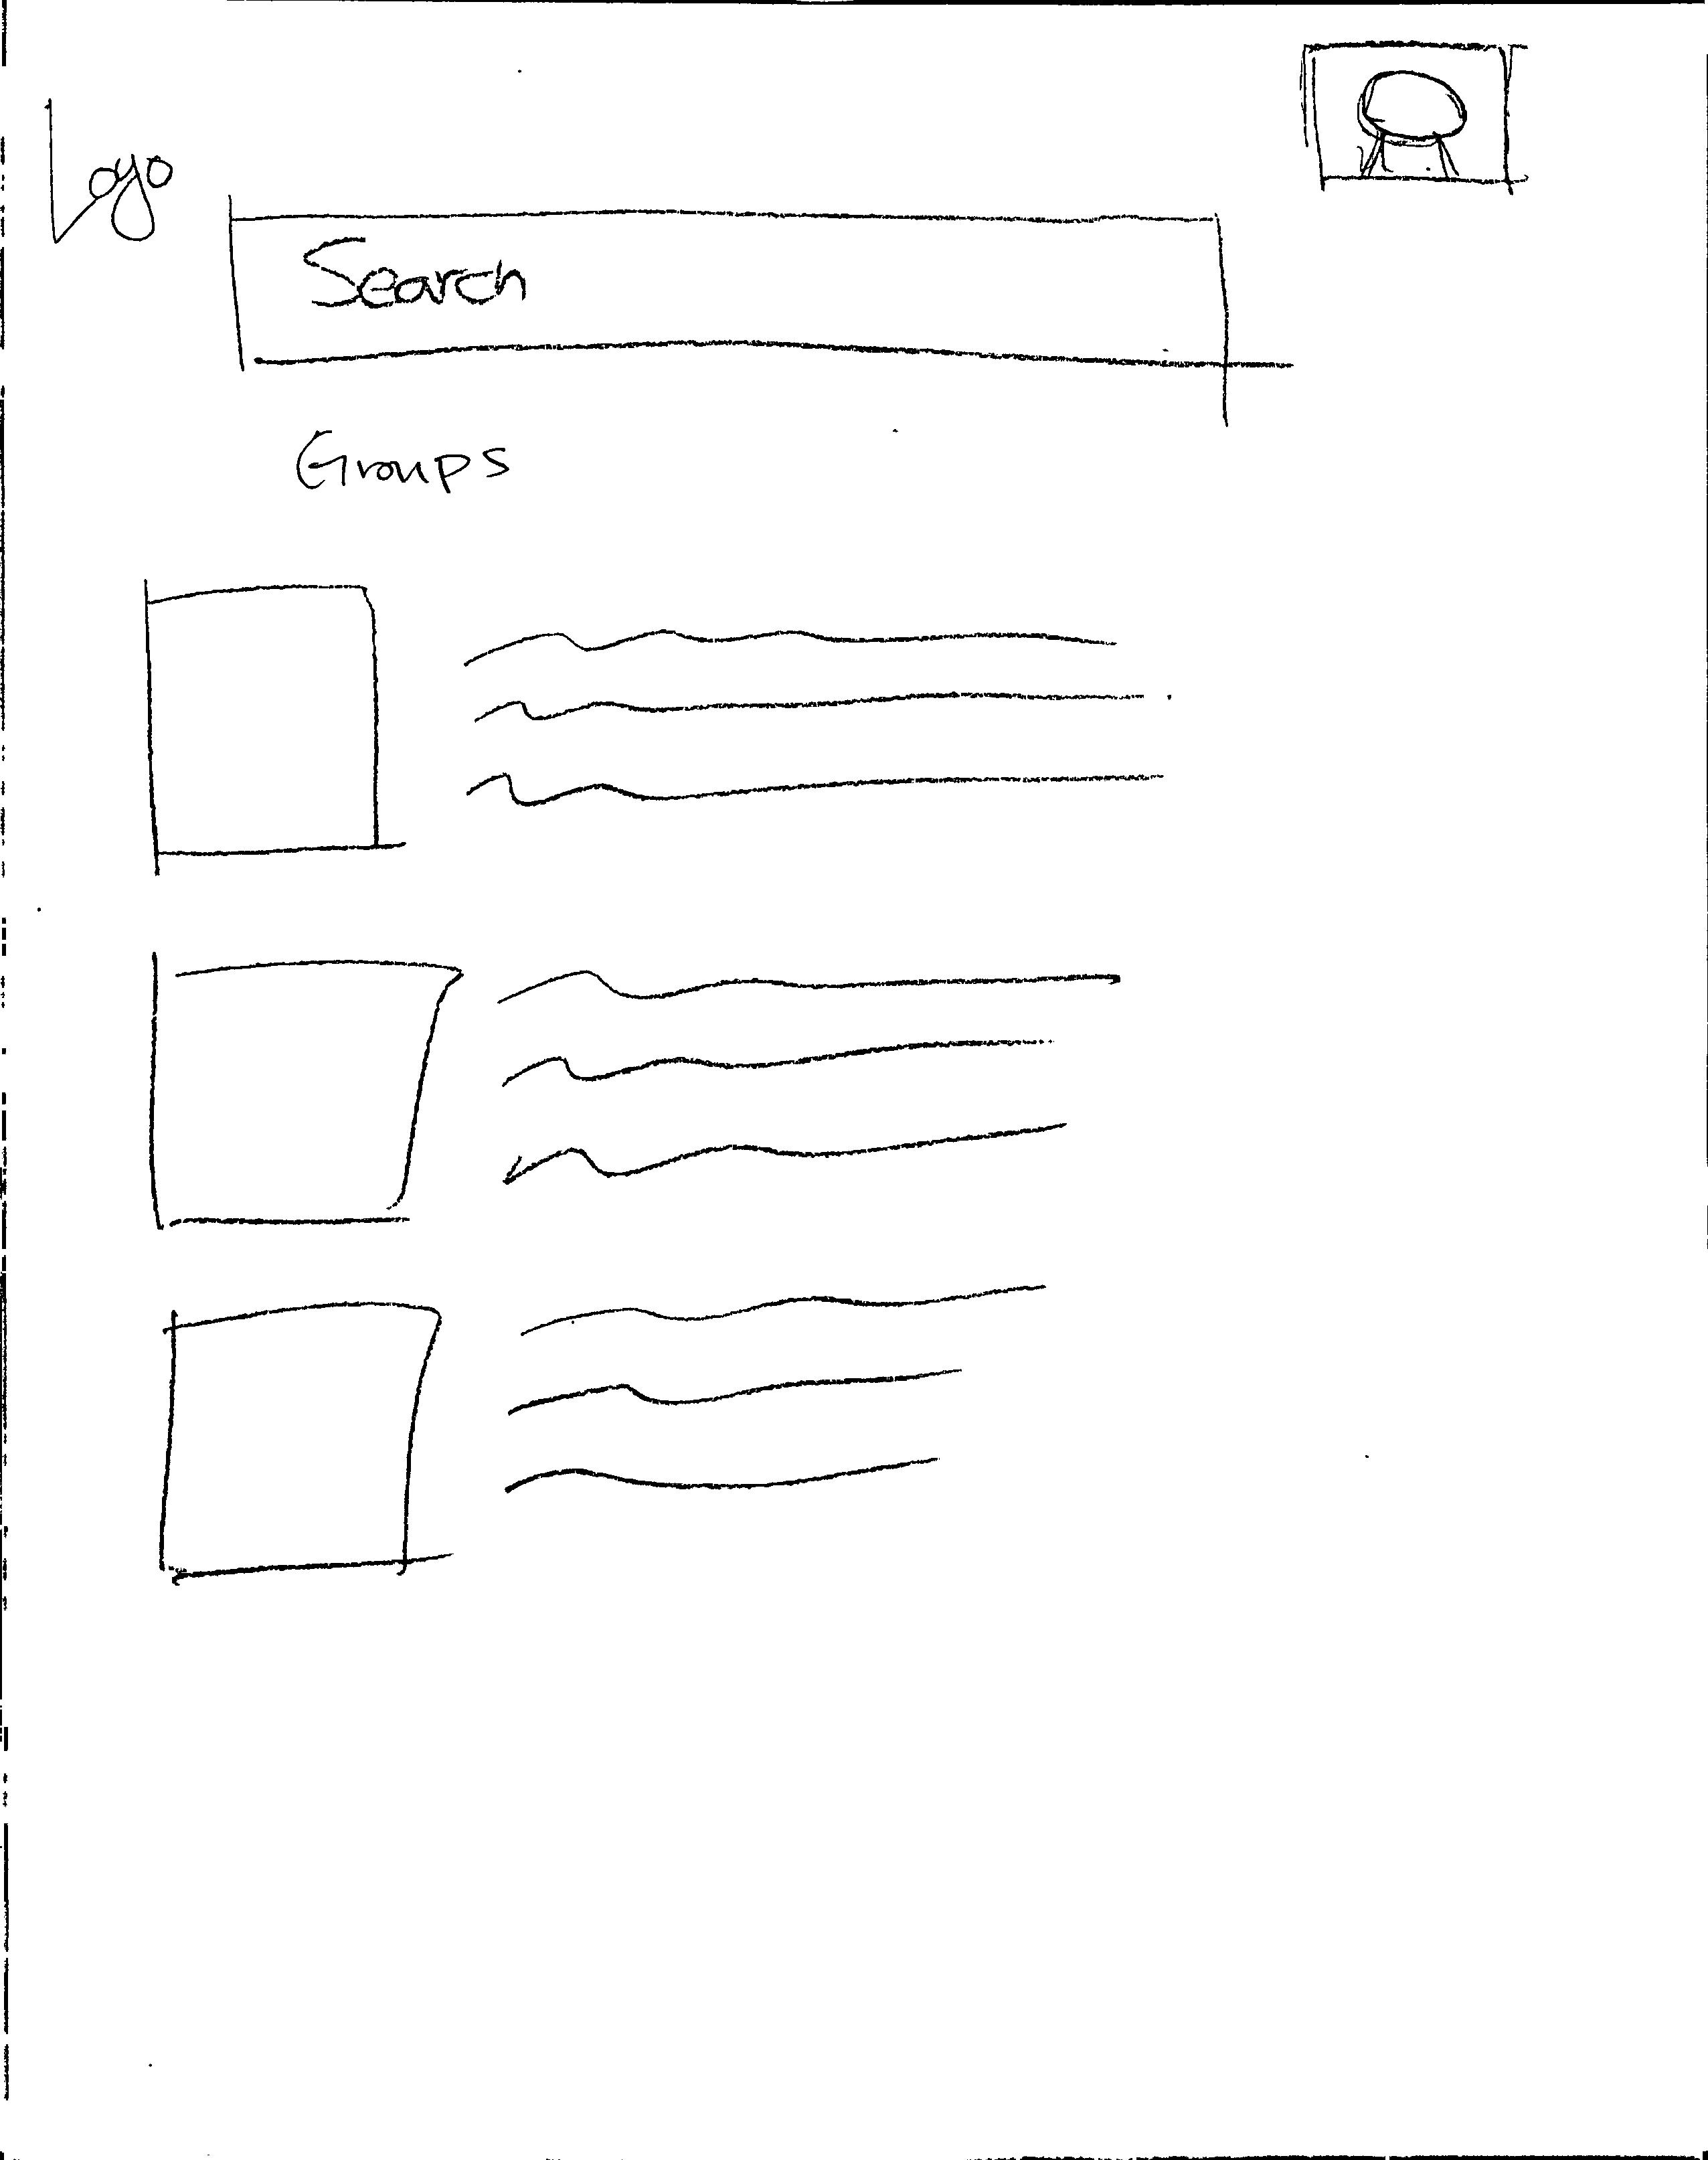 Logo
Search
Groups